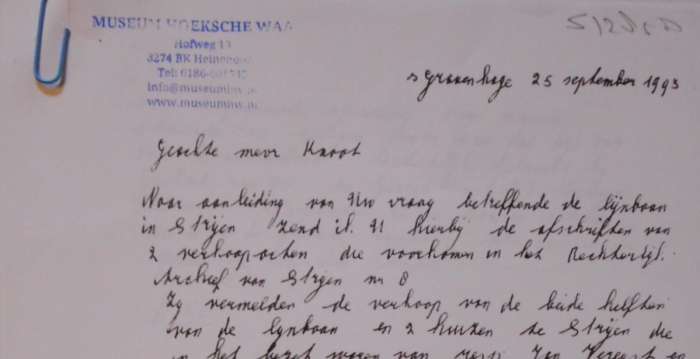 MUSEUM HOEKSCHE WAA
Hofweg 13
3274 BK Heinenoord
Tel: 0186-601535
info@museumhw.nl
www.museumhw.nl
s Gravenhage 25 september 1993
Geachte mevr Knoot
Naar aanleiding van Uw vraag betreffende de lijnbaan
in Strijen zend ik U hierbij de afschriften van
2 verkoopacten die voorkomen in het Rechterlijk
Archief van Strijen nr 8
Zij vermelden de verkoop van de beide helften
van de lijnbaan en 2 huizen te Strijen die
in het bezit waren van Jan